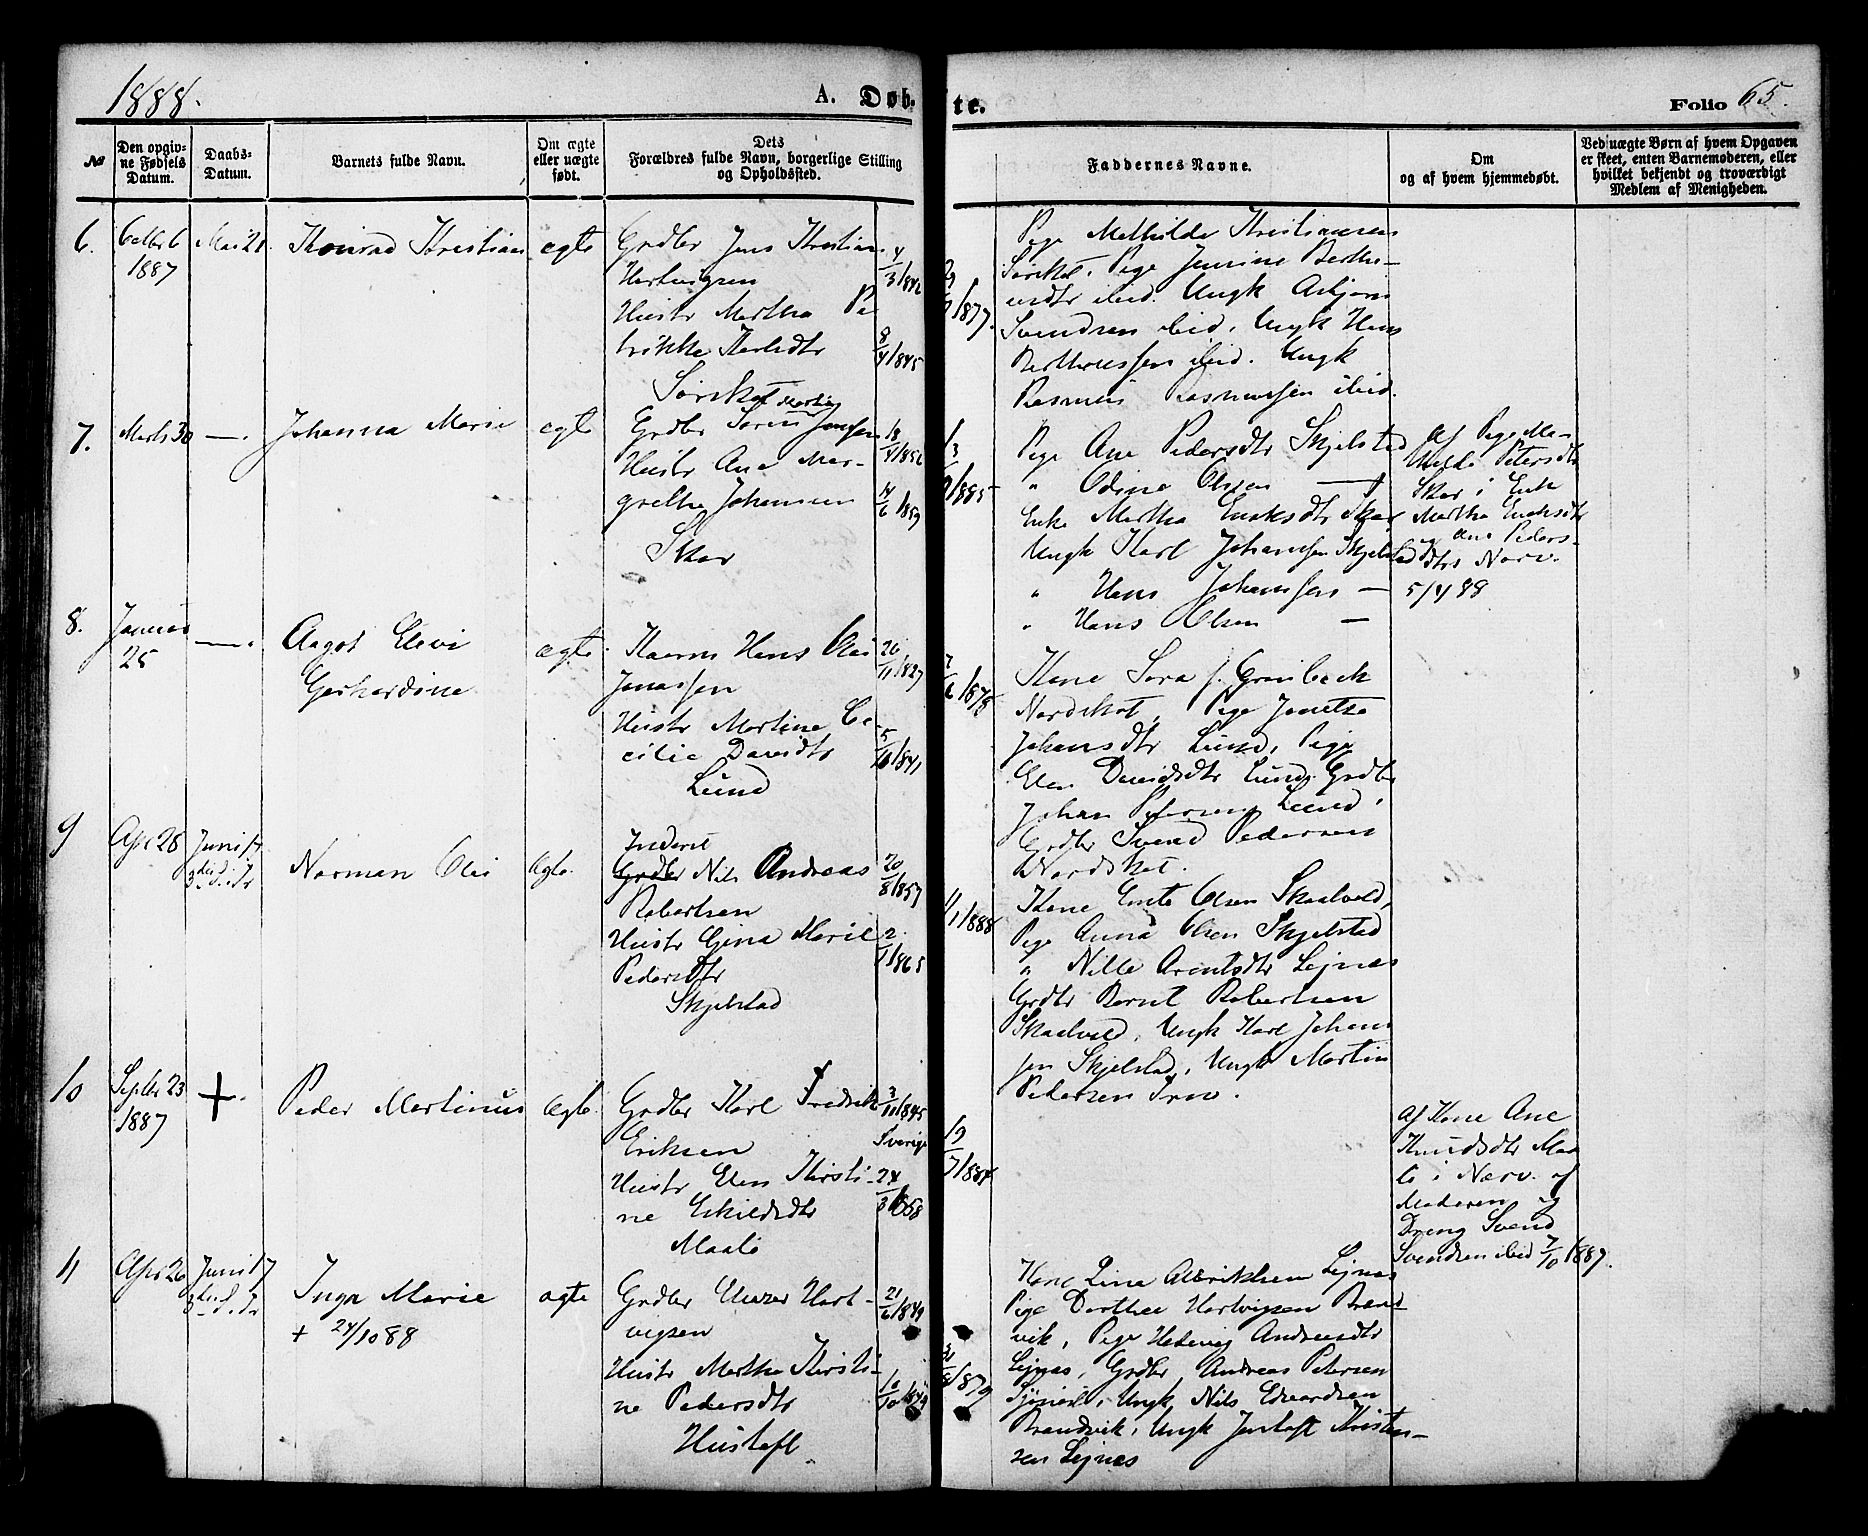 1888.
A. Døb-
te.
Folio 65.
No
Den opgiv-
ne Fødsels
Datum.
Daabs-
Datum.
Barnets fulde Navn.
Om ægte
eller uægte
født.
Dets
Forældres fulde Navn, borgerlige Stilling
og Opholdssted.
Faddernes Navne.
Om
og af hvem hjemmedøbt.
Ved uægte Børn af hvem Opgaven
er skeet, enten Barnemoderen, eller
hvilket bekjendt og troværdigt
Medlem af Menigheden.
6.
1887
Mai 21
Konrad Kristian
ægte
Grdbr Jens Kristian
Hartvigsen
Hustr Martha Pe
trikke
Sørskot
8/4 1845
/1877.
Pige Mathilde Kristiansen
Sørskot. Pige Jensine Berthe-
usdtr ibid. Ungk Asbjørn
Svendsen ibid, Ungk Hans
Bertheussen ibid. Ungk
Rasmus Rasmussen ibid.
7.
Marts 30
—.
Johanna Marie
ægte
Grdbr Søren Jensen
Hustr Ane Mar-
grethe Johansen
Skar
/1885
Pige Ane Pedersdtr Skjelstad
" Odine Olsen —
Enke Martha Enoksdtr Skar
Ungk Karl Johansen Skjelstad
" Hans Johansen —
" Hans Olsen —
Af Pige Ma-
thilde Petersdtr
Skar i Enk
Martha Enoksdtr
og Ane Peders-
dtrs Nærv.
5/4 88
8.
Januar
25
—.
Aagot Elevi
Gerhardine
ægte
Kaarm Hans Olai
Jonassen
Hustr Martine Ce-
cilie Davidtr
Lund
26/11 1827
/1841
/1878
Kone Sara f. Grønbech
Nordskot, Pige Jonette
Johansdtr Lund, Pige
Elen Davidsdtr Lund, Grdbr
Johan Petersen Lund,
Grdbr Svend Pedersen
Nordskot.
9
Apr 28
Juni 17
3die S. i Tr
Norman Olai
ægte.
Inderst
Grdbr Nils Andreas
Robertsen
Hustr Gina Marie
Pedersdtr
Skjelstad
20/8 1857
2/1 1865
/1888
Kone Ente Olsen Skaalvold,
Pige Anna Olsen Skjelstad
" Nille Arentsdtr Lejnes
Grdbr Bernt Robertsen
Skaalvold, Ungk Karl Johan
sen Skjelstad, Ungk Martin
Pedersen
10
Septbr 23
1887
+
Peder Martinus
ægte.
Grdbr Karl Fredrik
Eriksen
Hustr Elen Kirsti-
ne Eskildsdtr
Maalø
3/10 1845
Sverige
24/3 1858
19/7 1884
Af Kone Ane
Knudsdtr Maa
lø i Nærv. af
Moderen og
Dreng Svend
Svendsen ibid 7/10 1887.
11
Apr 26
Juni 17
3die S. i Tr
Inga Marie
+ 24/10 88
ægte
Grdbr Hart-
vigsen
Hustr Martha Kirsti-
ne Pedersdtr
Hustoft
21/6 1849
/1879
Kone Line Albriktsen Lejnes
Pige Dorthea Hartvigsen Brand-
vik, Pige Hedevig Andreasdtr
Lejnes, Grdbr Andreas Petersen
Ungk Nils Edvardsen
Brandvik, Ungk Jentoft Kristen-
sen Lejnes